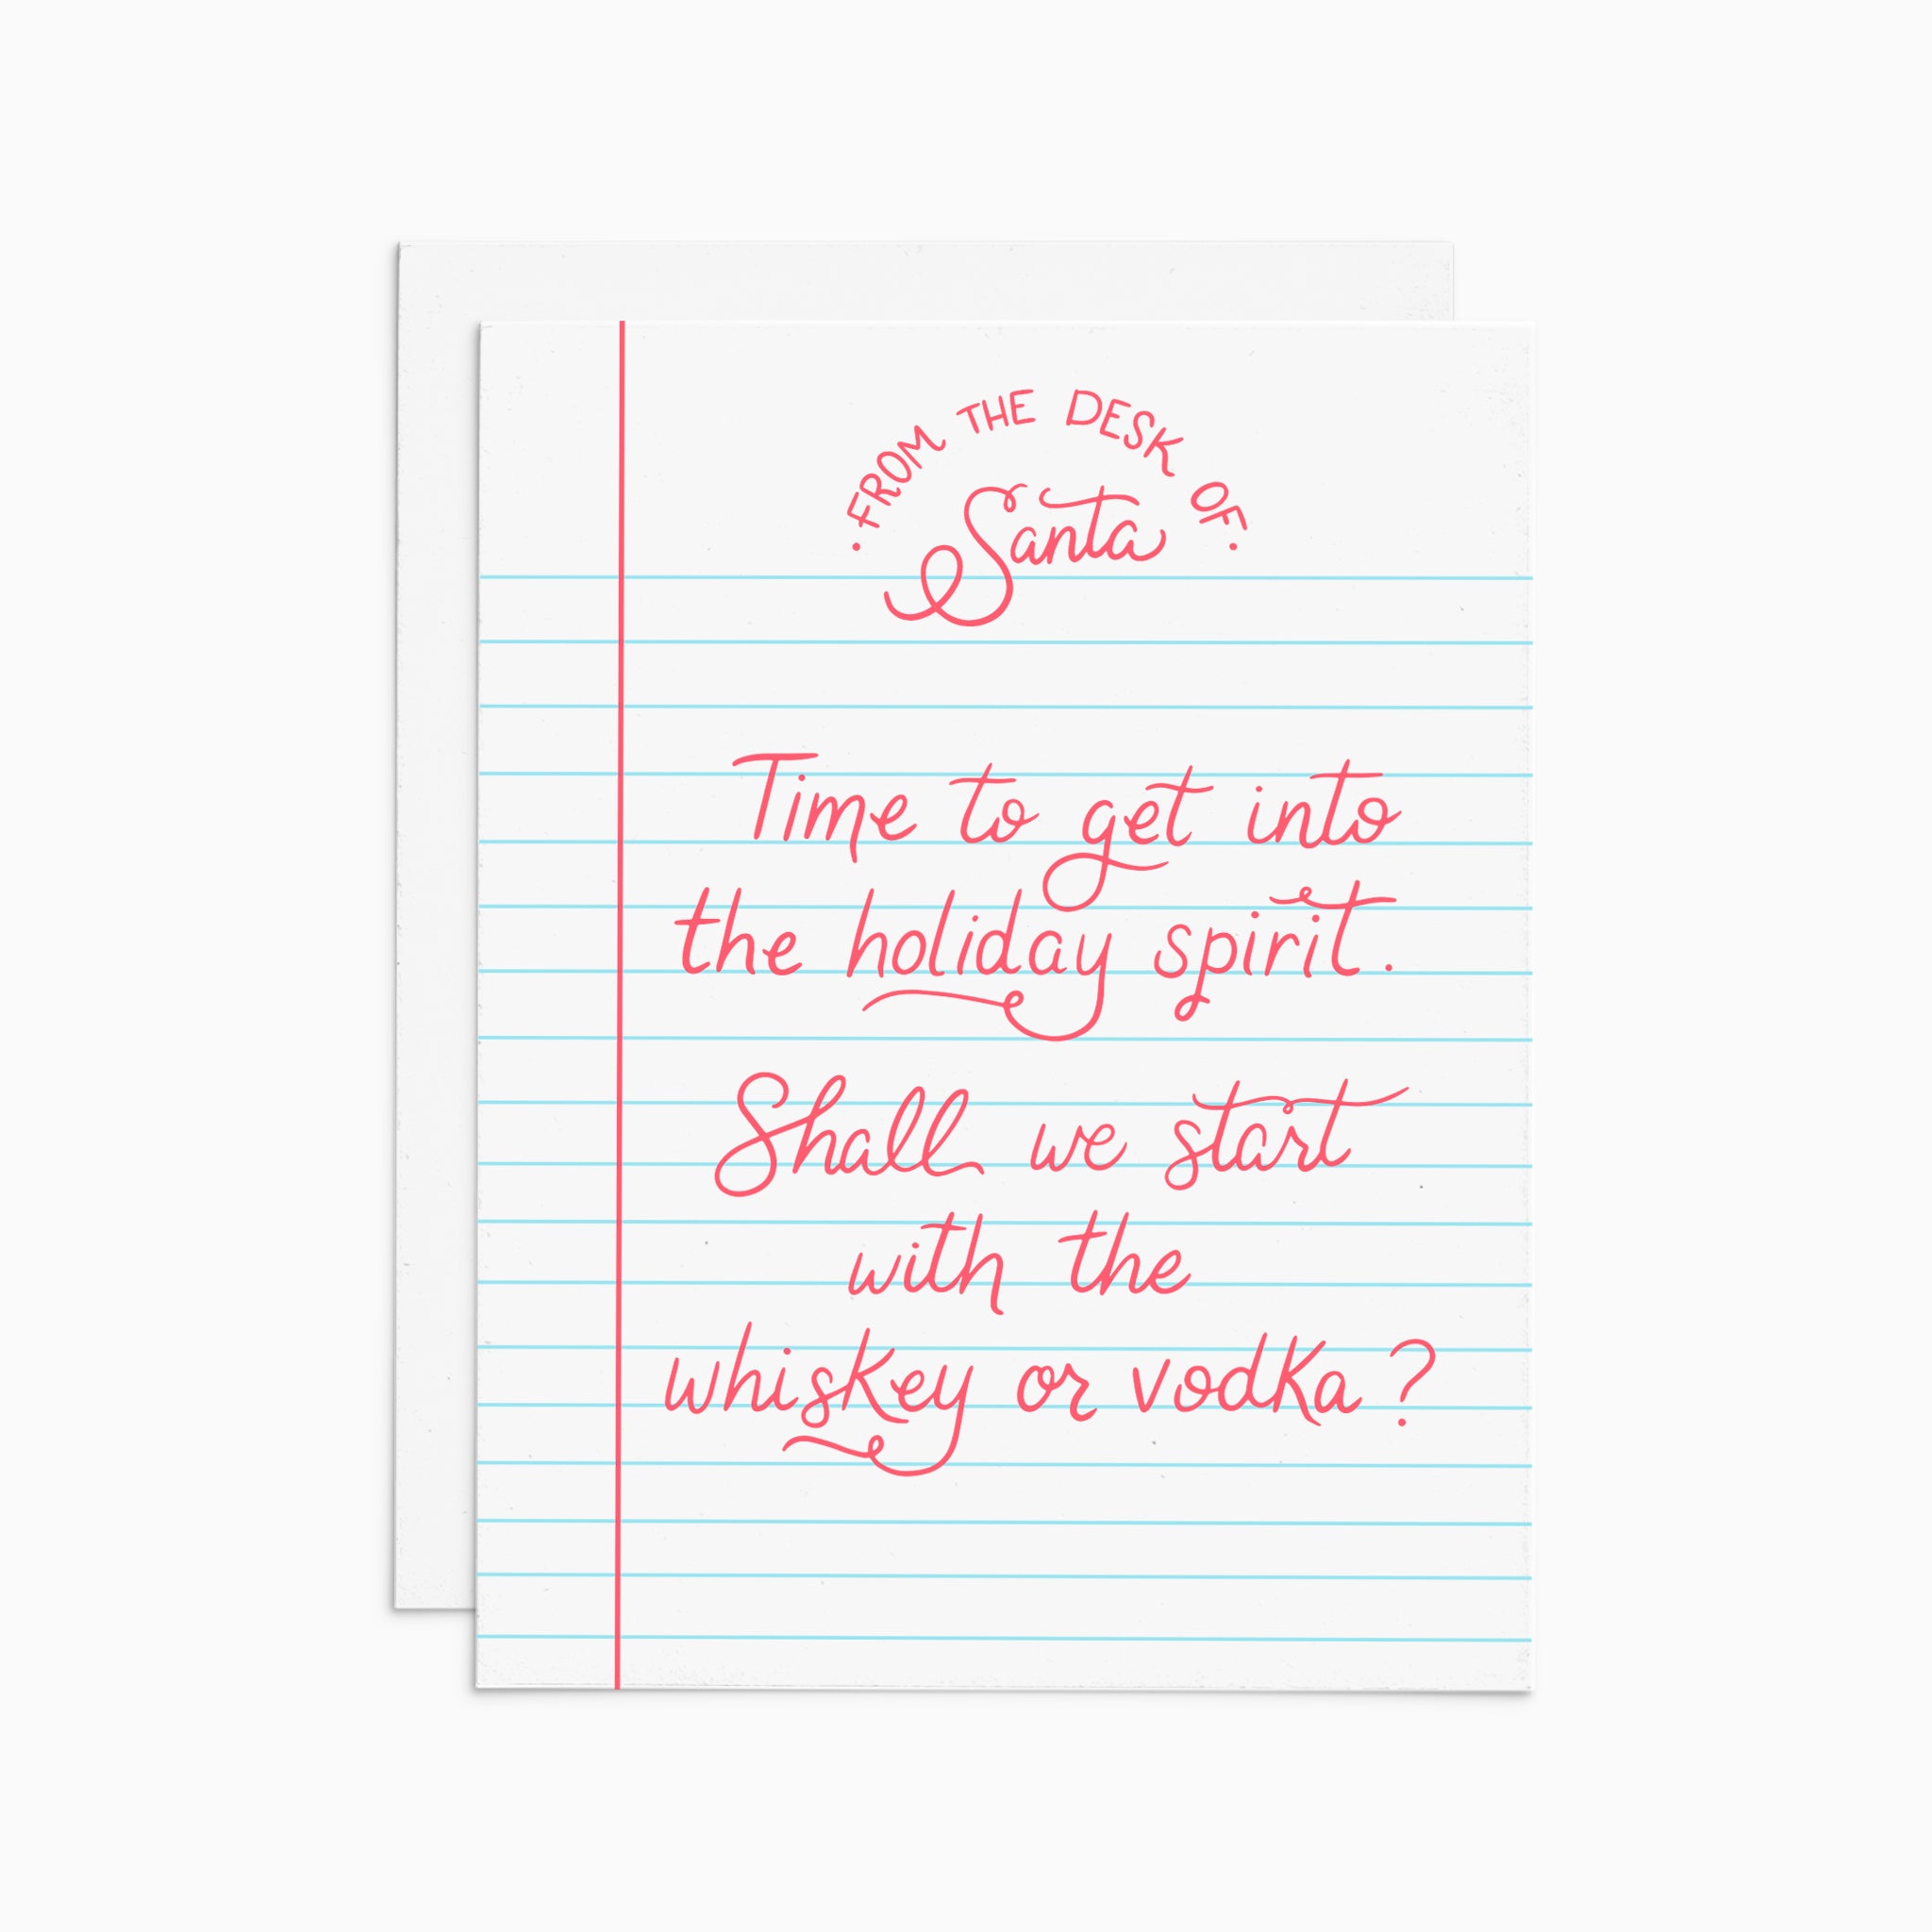 • FROM THE DESK OF •
Santa
Time to get into
the holiday spirit.
Shall we start
with the
whiskey or vodka?